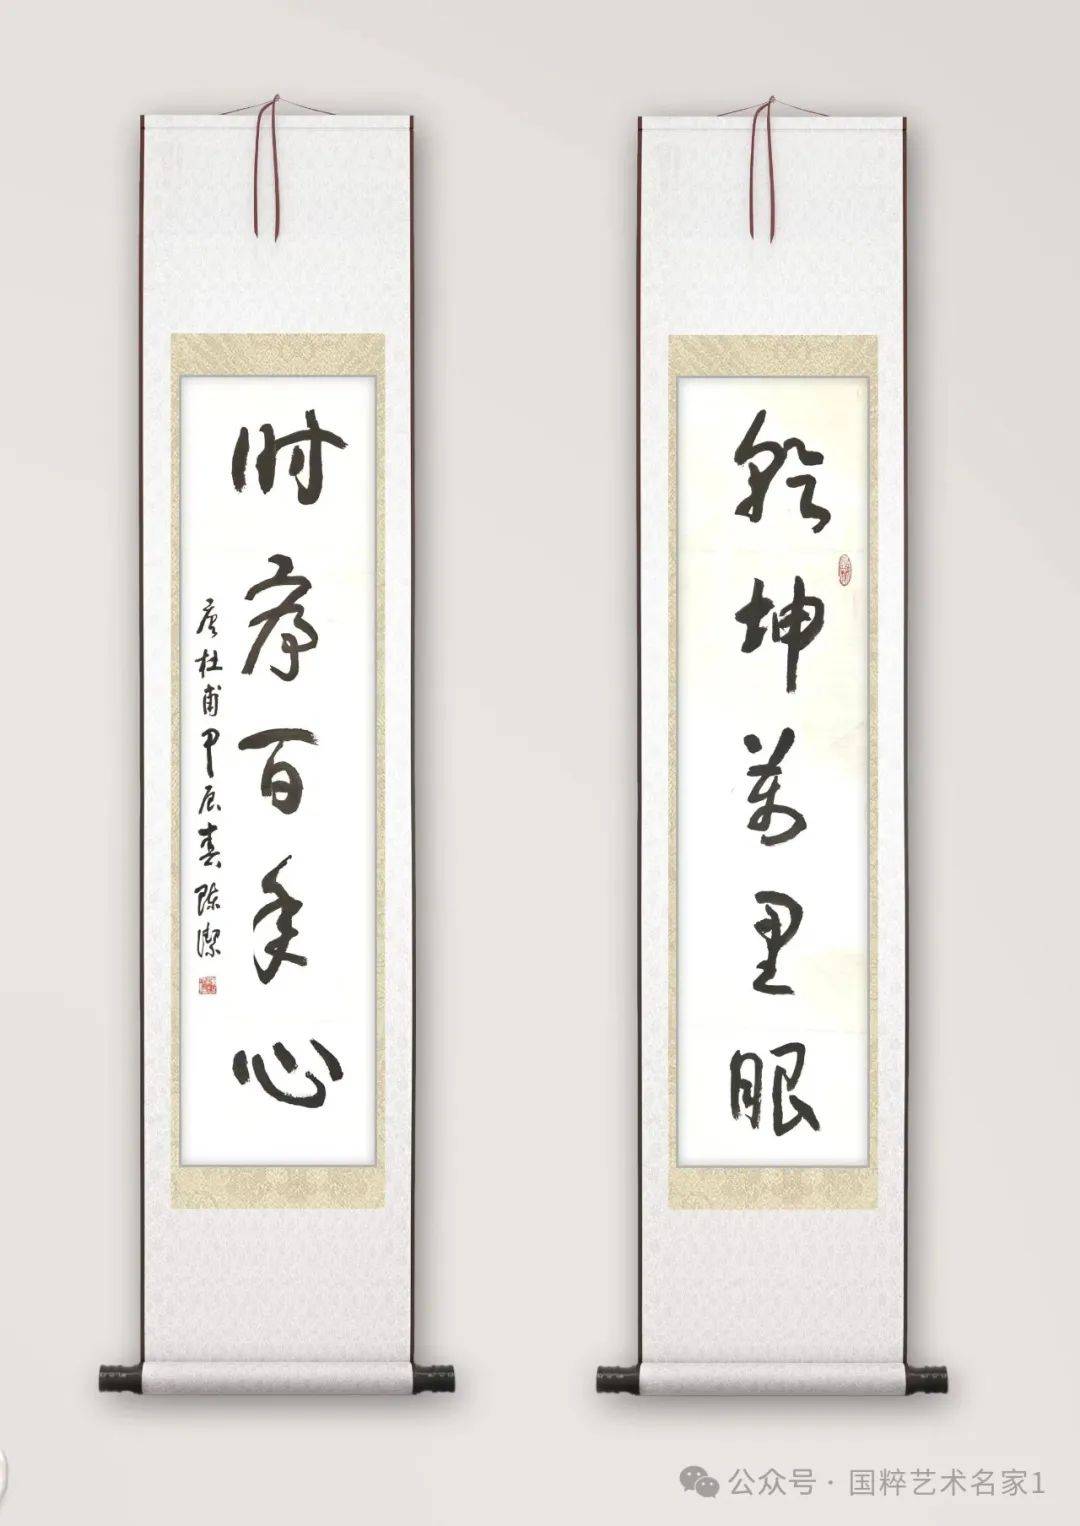 乾坤萬里眼
时序百年心
唐杜甫甲辰春陈潔
公众号·国粹艺术名家1